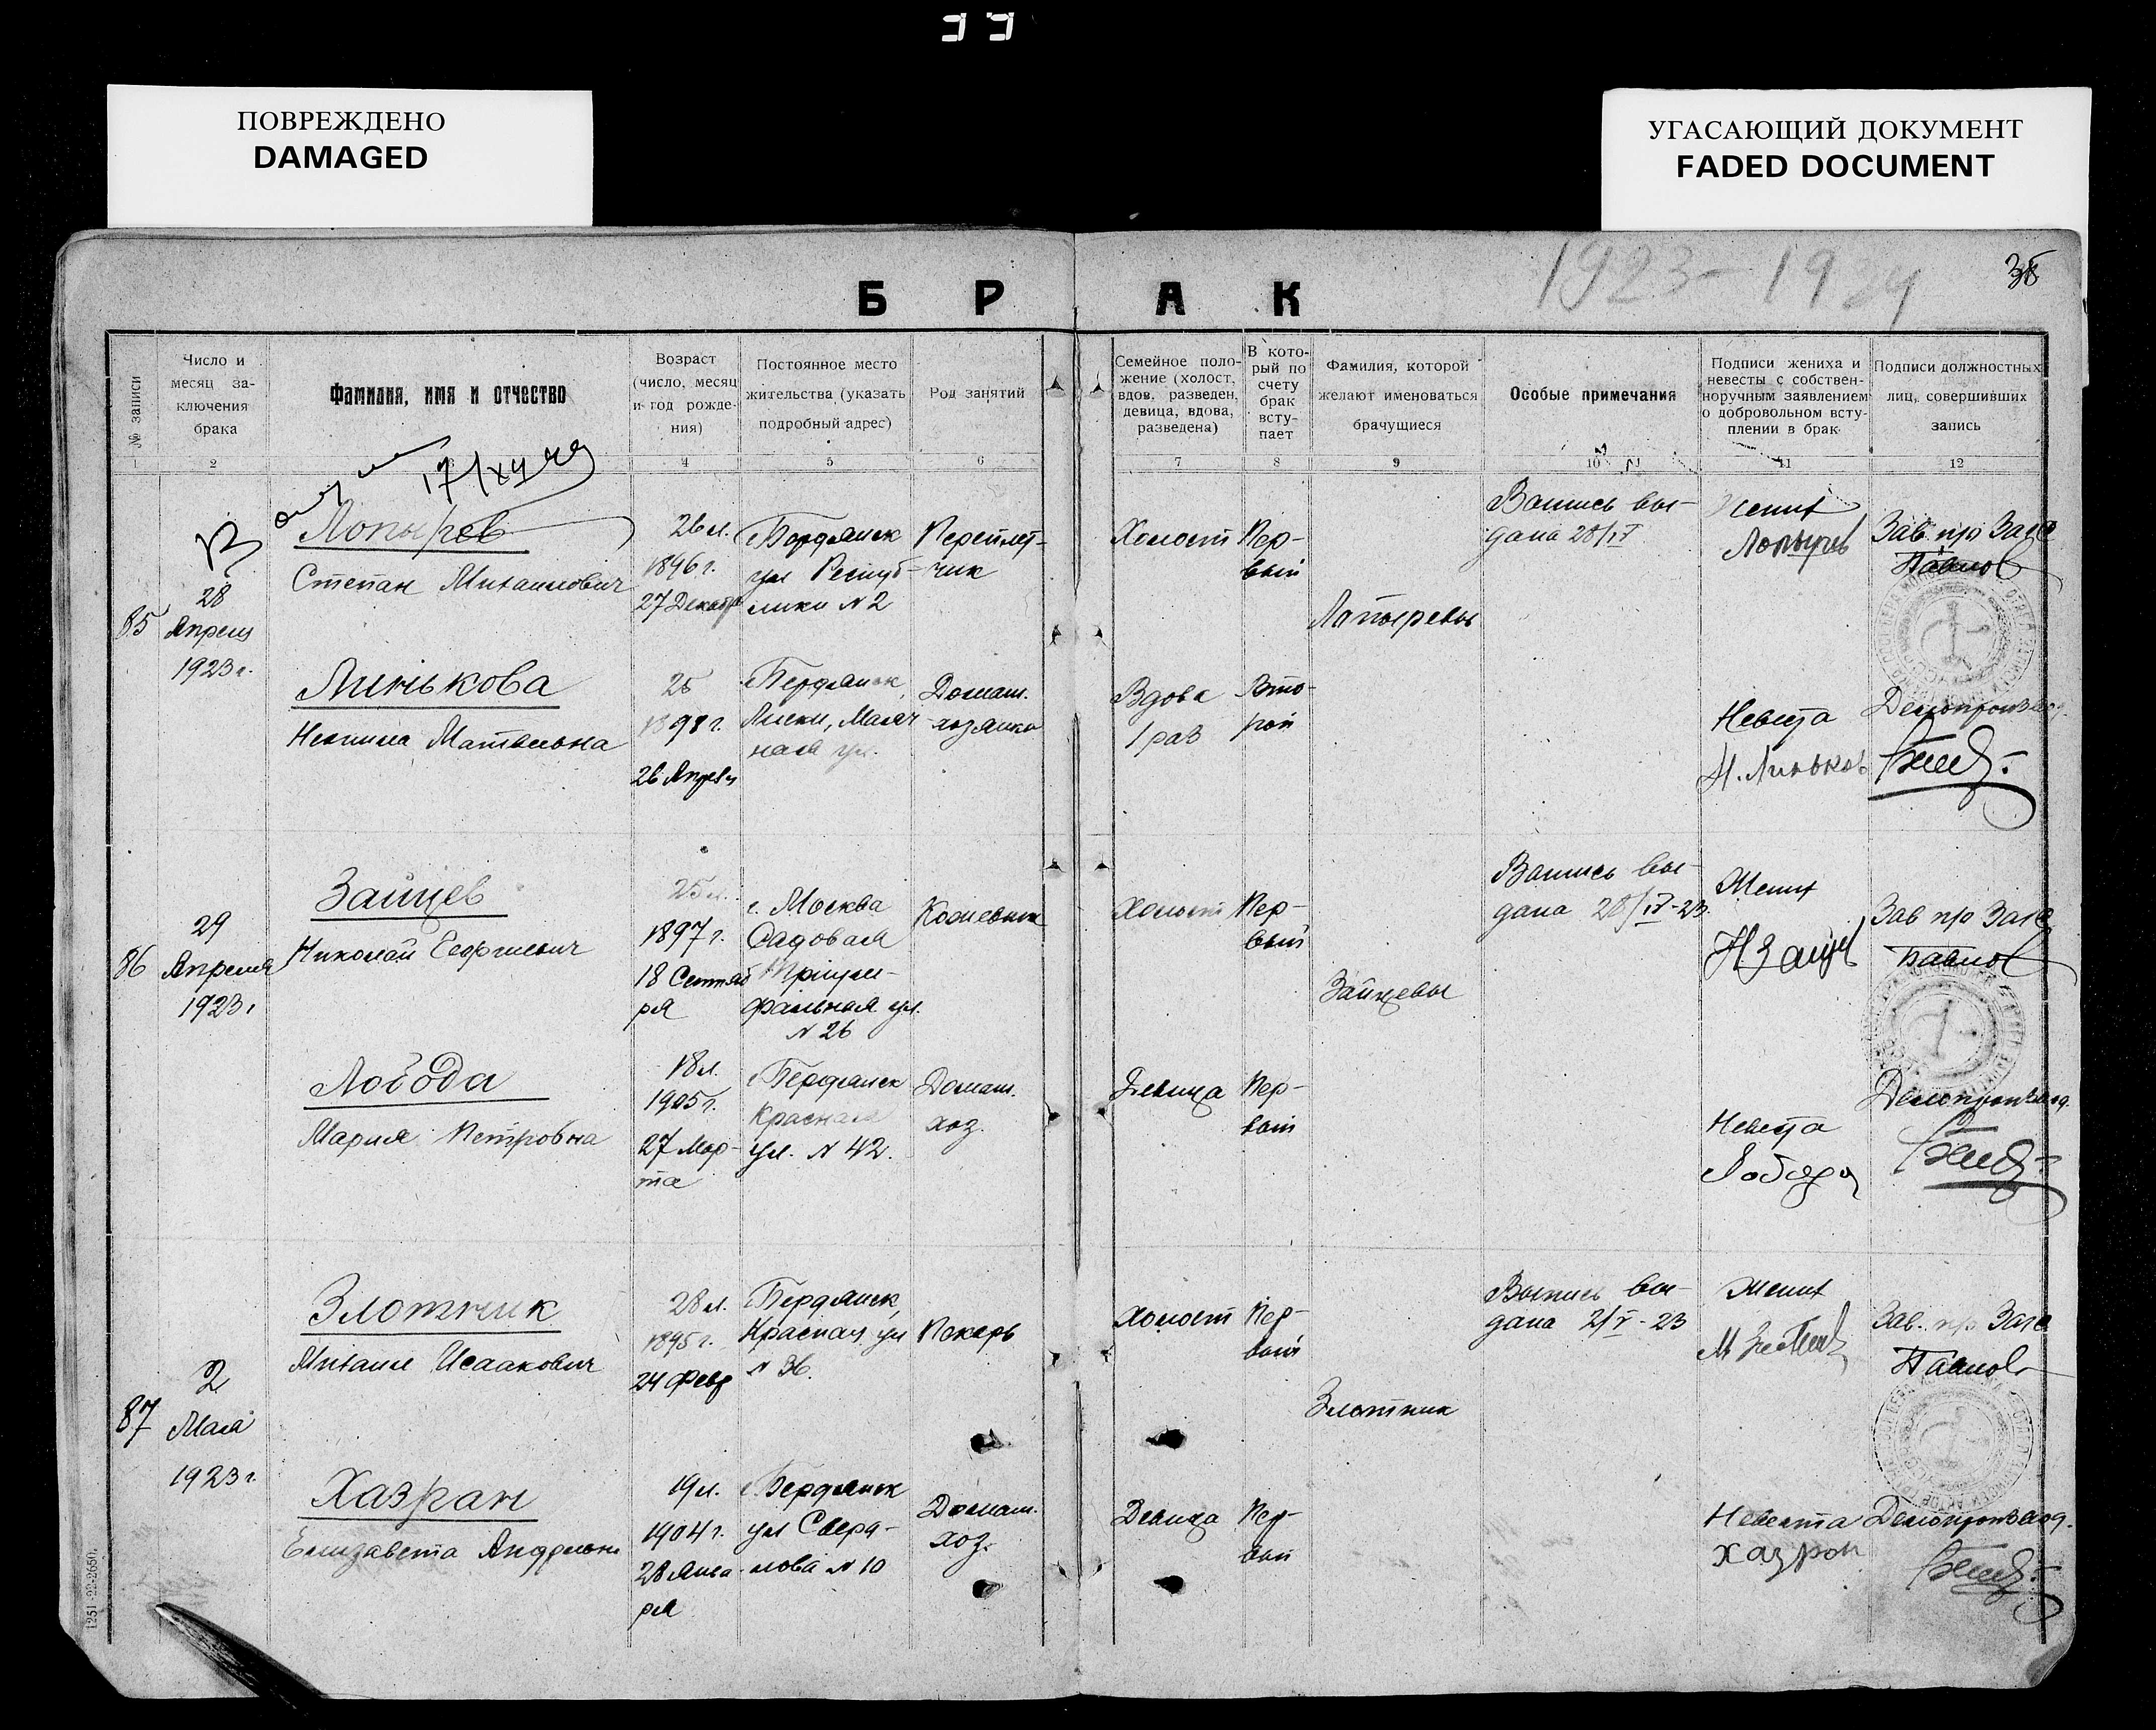 ПОВРЕЖДЕНО
DAMAGED
УГАСАЮЩИЙ ДОКУМЕНТ
FADED DOCUMENT
1923-1924
БРАК
№ записи
Число и месяц заключения брака
Фамилия, имя и отчество
Возраст (число, месяц и год рождения)
Постоянное место жительства (указать подробный адрес)
Род занятий
Семейное положение (холост, вдов, разведен, девица, вдова, разведена)
В который по счету брак вступает
Фамилия, которой желают именоваться брачущиеся
Особые примечания
Подписи жениха и невесты с собственноручным заявлением о добровольном вступлении в брак
Подписи должностных лиц, совершивших запись
1 2 4 5 6 7 8 9 10 11 12
85
28
Апреля
1923 г.
Лопырев
Степан Михайлович
26 л.
1896 г.
27 Декабр
г. Бердянск
ул Респуб-
лики № 2
Переплет-
чик
Холост
Пер-
вый
Лопыревы
Выпись вы-
дана 28/IV
Жених
Лопырев
Зав. п/о Загс
Павлов
Линькова
Матвеевна
25
1898 г.
26 Апреля
г. Бердянск,
Лиски,
ная ул.
Домаш.
хозяйка
Вдова
1 раз
Вто-
рой
Невеста
Н. Линьков
Делопроизвод.
86
29
Апреля
1923 г.
Зайцев
Николай Георгиевич
25 л.
1897 г.
18 Сентяб
ря
г. Москва
Садовая
Триум-
фальная ул.
№ 26
Кожевник
Холост
Пер-
вый
Зайцевы
Выпись вы-
дана 28/IV-23
Жених
Н Зайцев
Зав п/о Загс
Павлов
Лобода
Мария Петровна
18 л.
1905 г.
27 Мар-
та
г. Бердянск
Красная
ул. № 42.
Домаш.
хоз.
Девица
Пер-
вый
Невеста
Лобода
Делопроизвод.
87
2
Мая
1923 г.
Злотник
Михаил Исаакович
28 л.
1895 г.
24 Февр
г. Бердянск,
Красная ул
№ 36.
Пекарь
Холост
Пер-
вый
Злотник
Выпись вы-
дана 2/V-23
Жених
М Злотник
Зав. п/о Загс
Павлов
Хазран
Елизавета
19 л.
1904 г.
28 Янва-
ря
г. Бердянск
ул Сверд-
лова № 10
Домаш.
хоз.
Девица
Пер-
вый
Невеста
Хазрон
Делопроизвод.
1251-22-2650.